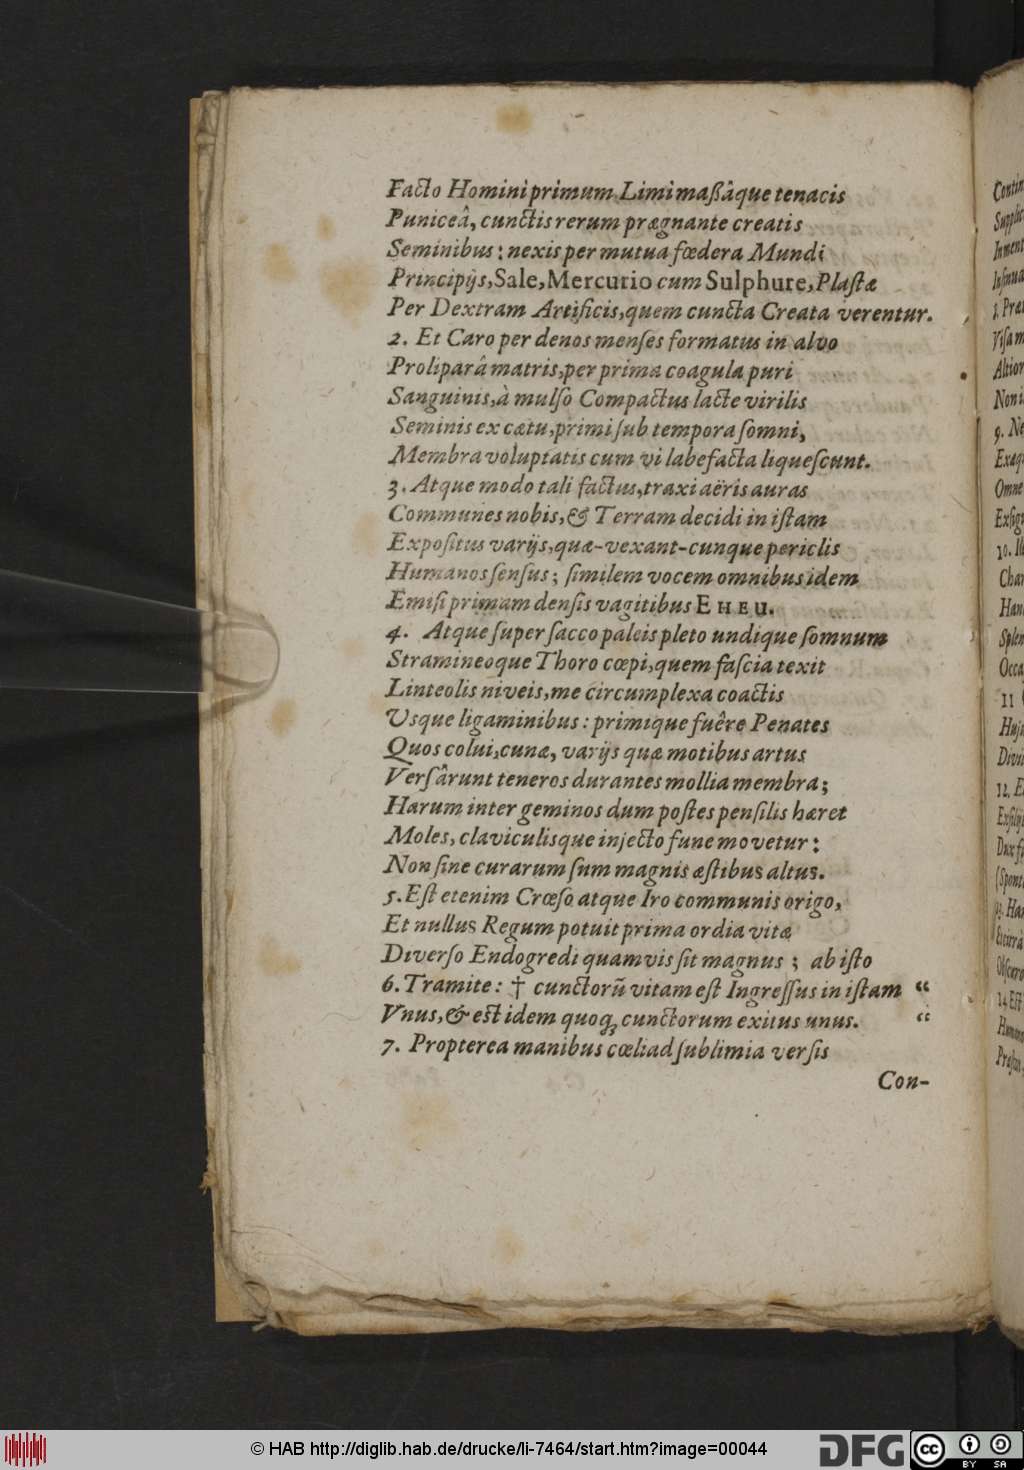 Facto Homini primum Limi maßâque tenacis
Puniceâ, cunctis rerum prægnante creatis
Seminibus: nexis per mutua fœdera Mundi
Principijs, Sale, Mercurio cum Sulphure, Plaſtæ
Per Dextram Artificis, quem cuncta Creata verentur.
2. Et Caro per denos menſes formatus in alvo
Proliparâ matris, per prima coagula puri
Sanguinis, à mulſo Compactus lacte virilis
Seminis ex cætu, primi ſub tempora ſomni,
Membra voluptatis cum vi labefacta liqueſcunt.
3. Atque modo tali factus, traxi aëris auras
Communes nobis, & Terram decidi in iſtam
Expoſitus varijs, quæ-vexant-cunque periclis
Humanos ſenſus; ſimilem vocem omnibus idem
Emiſi primam denſis vagitibus EHEU.
4. Atque ſuper ſacco paleis pleto undique ſomnum
Stramineoque Thoro cœpi, quem faſcia texit
Linteolis niveis, me circumplexa coactis
Usque ligaminibus: primique fuêre Penates
Quos colui, cunæ, varijs quæ motibus artus
Verſârunt teneros durantes mollia membra;
Harum inter geminos dum poſtes penſilis hæret
Moles, claviculisque injecto fune movetur:
Non ſine curarum ſum magnis æſtibus altus.
5. Eſt etenim Crœſo atque Iro communis origo,
Et nullus Regum potuit prima ordia vitæ
Diverſo Endogredi quamvis ſit magnus; ab iſto
6. Tramite: † cunctorũ vitam eſt Ingreſſus in iſtam “
Vnus, & eſt idem quoq; cunctorum exitus unus. “
7. Propterea manibus cœli ad ſublimia verſis
Con-
9. Ne
12. E
© HAB http://diglib.hab.de/drucke/li-7464/start.htm?image=00044
DFG
cc
BY SA